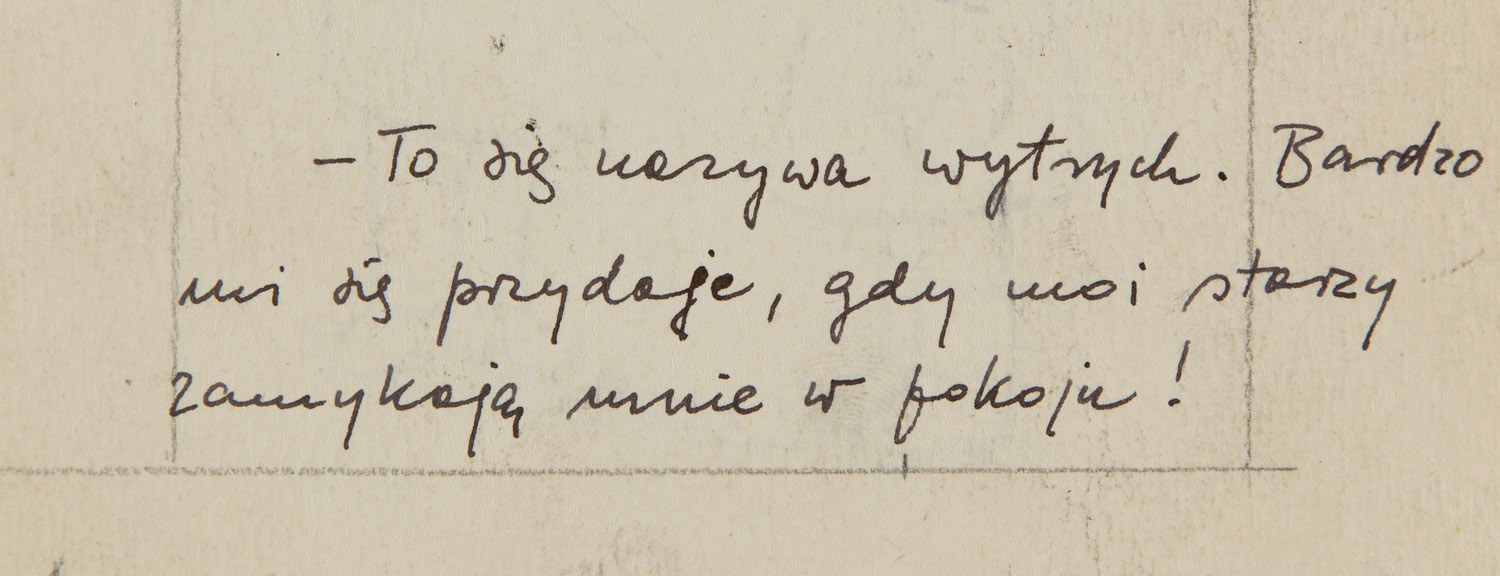 – To się nazywa wytrych. Bardzo
mi się przydaje, gdy moi starzy
zamykają mnie w pokoju!